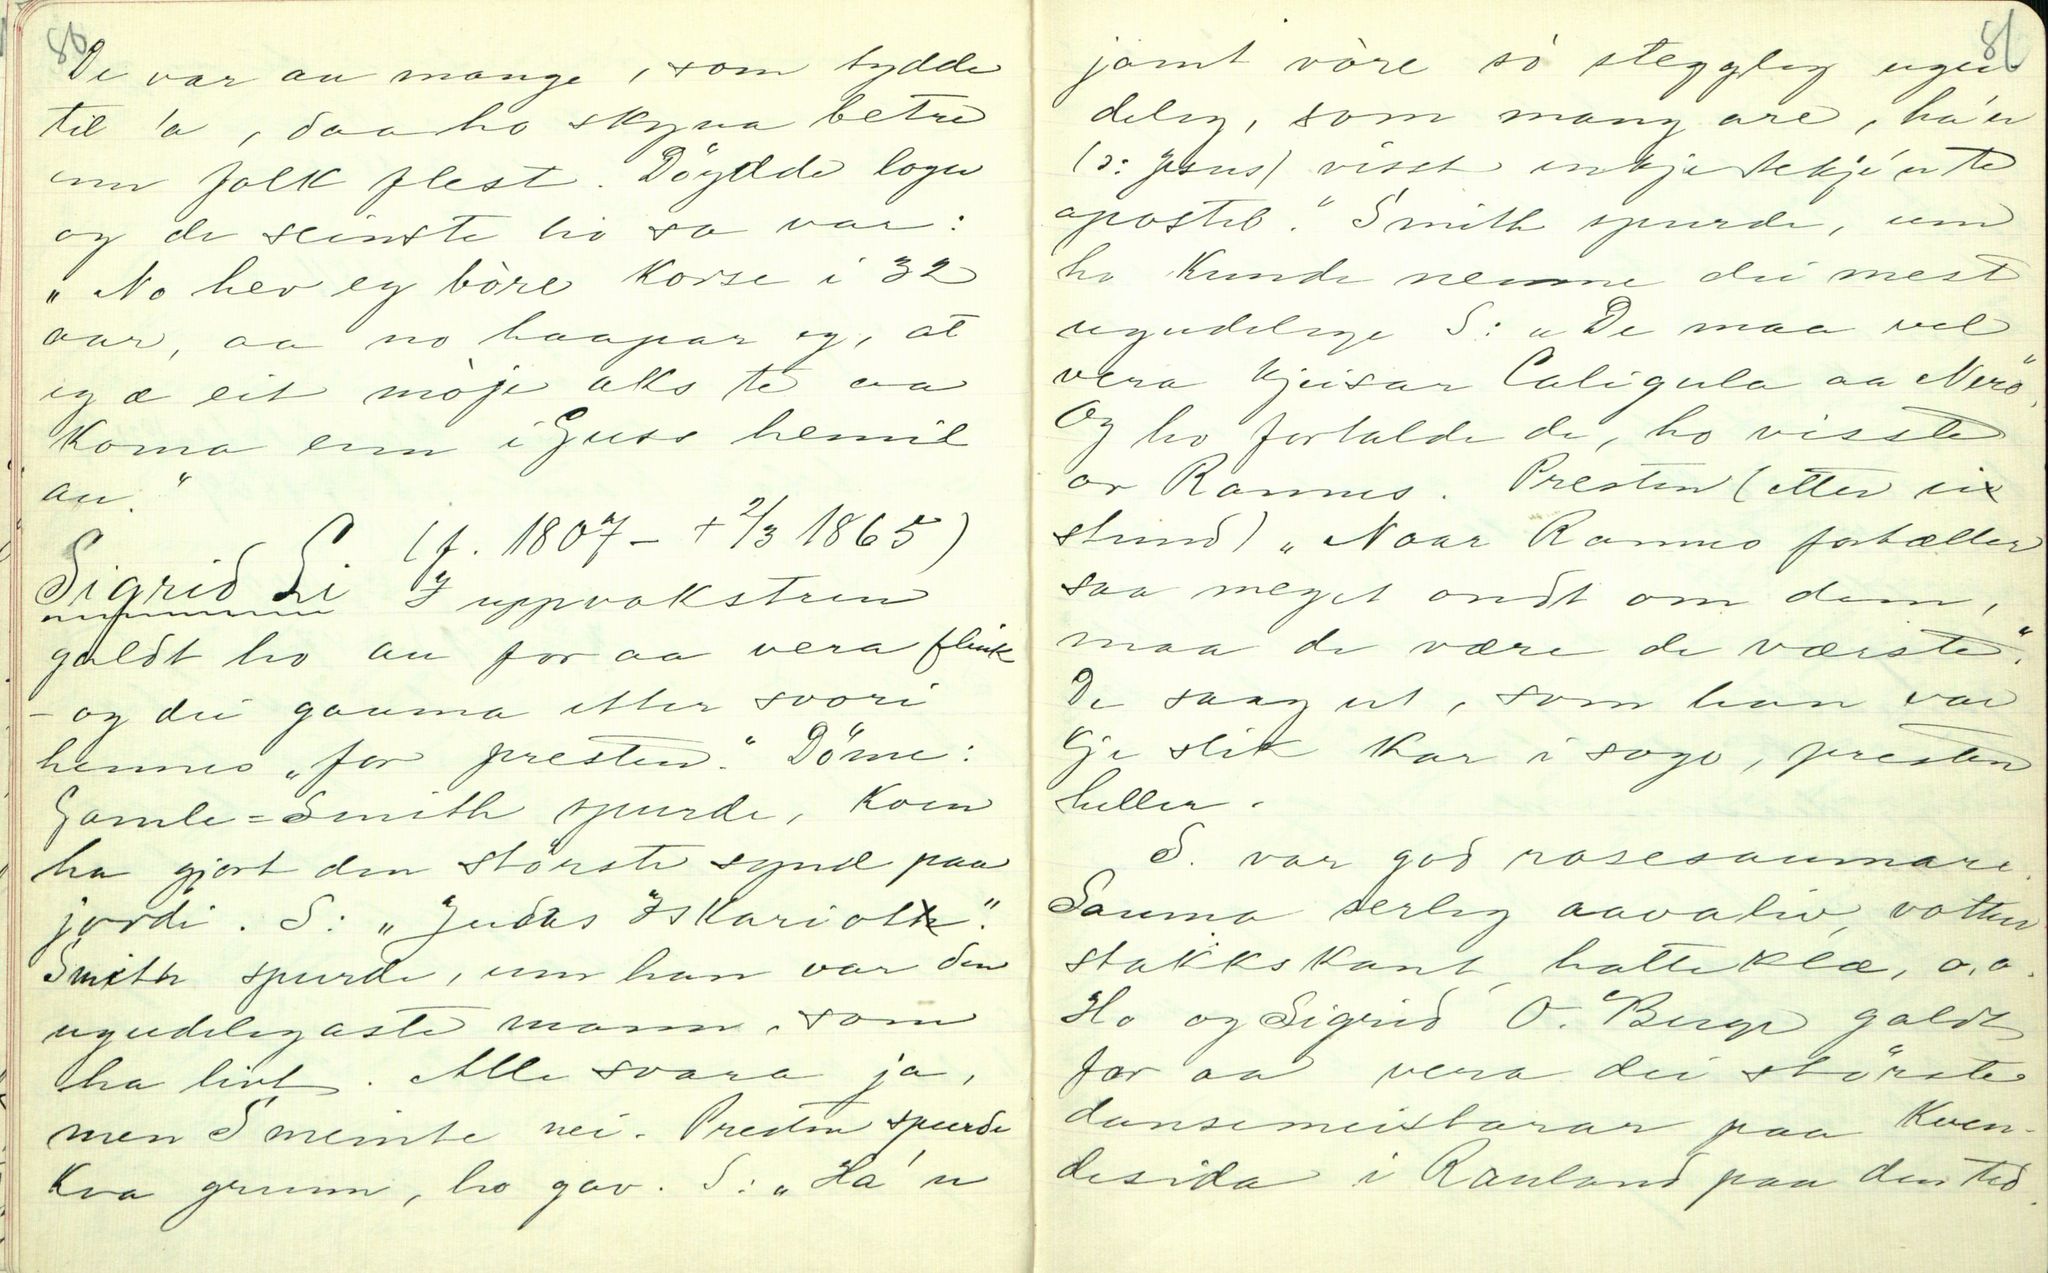 80
De var au mange, som tydde
til 'a, daa ho skyna betre
enn folk flest. Döydde logn
og de seinste ho sa var:
„No hev eg bòre korse i 32
aar, aa no haapar eg, at
eg æ eit mòje aks te aa
koma enn i Guss hemil
au."
Sigrid Li (f. 1807 – + 2/3 1865)
I uppvokstren
galdt ho au for aa vera flink
– og dei gauma etter svori
hennes „for presten". Döme:
Gamle=Smith spurde, kven
ha gjort den störste synd paa
jordi. S: „Judas Iskariot".
Smith spurde, um han var den
ugudelegaste mann, som
ha livt. Alle svara ja,
men S meinte nei. Presten spurde
kva grunn, ho gav. S: „Ha' n
81
jamt vòre sò steggleg ugu-
deleg, som mang are, ha'n
(ɔ: Jesus) visst inkje tekje'n te
apostel." Smith spurde, um
ho kunde nemne dei mest
ugudelege S: „De maa vel
vera kjeisar Caligula aa Nero".
Og ho fortalde de, ho visste
or Ramus. Presten (etter ei
stund) „Naar Ramus fortæller
saa meget ondt om dem,
maa de være de værste".
De saag ut, som han var
kje slik kar i sogo, presten
heller.
S. var god rosesaumare.
Sauma serleg aavaliv, votter
stakkskant, hatteklæ, o.a.
Ho og Sigrid O. Berge galdt
for aa vera dei störste
dansemeistarar paa kven-
desida i Rauland paa den tid.